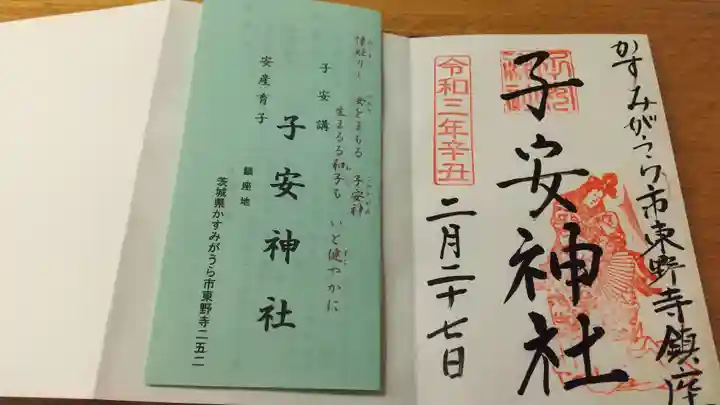 かすみがうら市東野寺鎮座
子安神社
令和三年辛丑
二月二十七日
母をまもる 子安神
生まるる和子も いと健やかに
子安講
安産育子
子安神社
鎮座地
茨城県かすみがうら市東野寺二五二